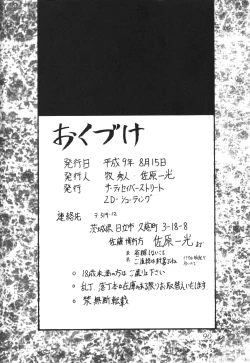 おくづけ
発行日 平成9年 8月15日
発行人 牧 秀人・佐原一光
発行 サーティセイバーストリート
2D・シューティング
連絡先 〒319-12
茨城県 日立市 久慈町 3-18-8
佐藤 博行方 佐原一光まで
※
※
○ 18歳未満の方はご遠慮下さい
○ 乱丁、落丁本は在庫のある限りお取替えいたします
○ 禁 無断転載